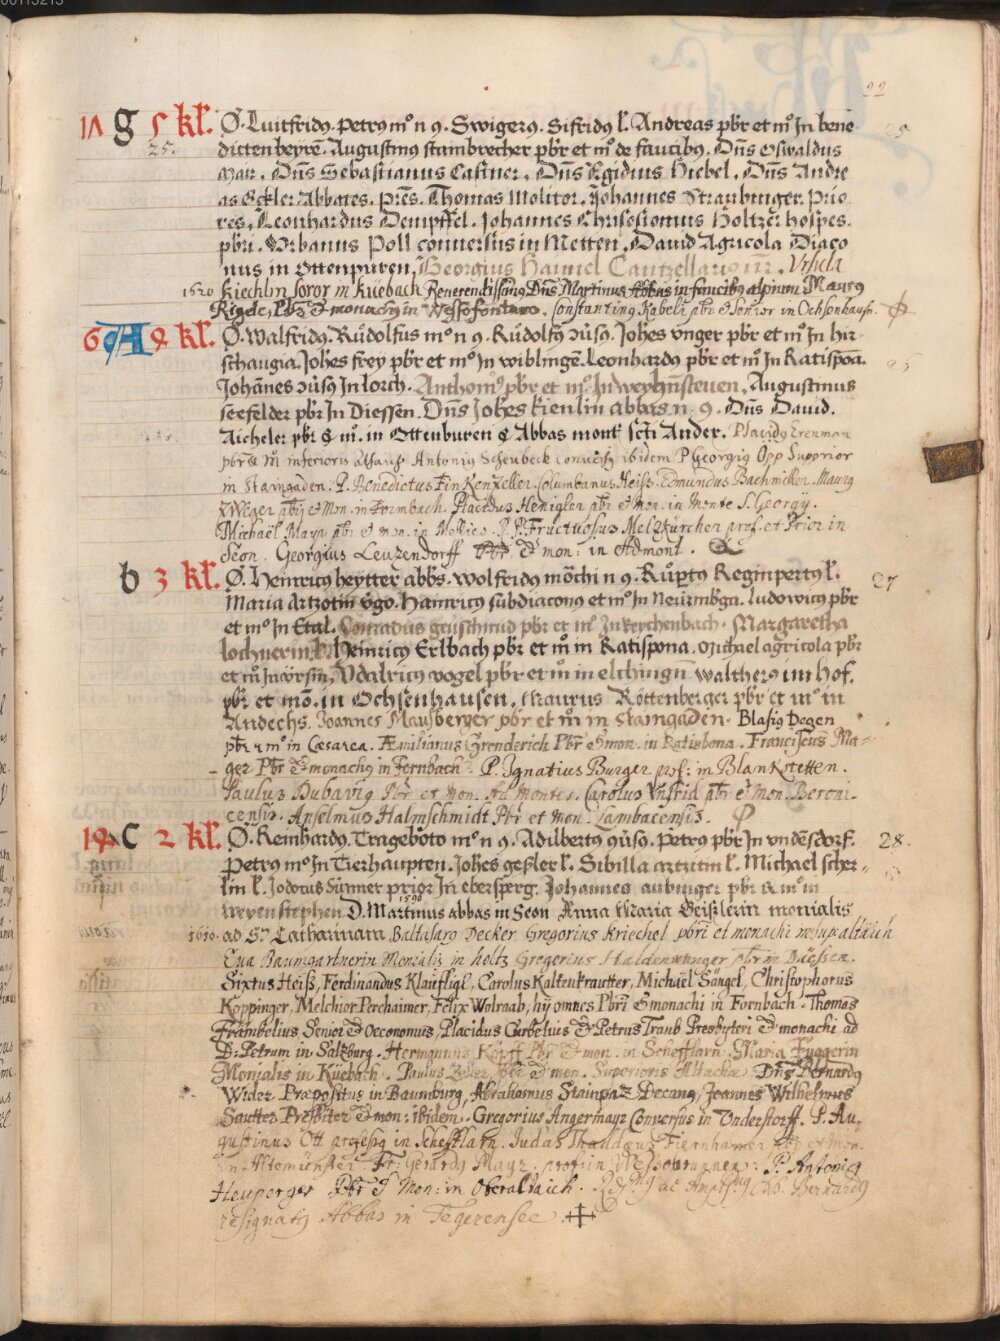 00115213
22
1Λ g 5 kł. O. Luitfridꝰ. Petrus mº n 9. Swigerꝰ. Sifridꝰ ł. Andreas pbr et mº In bene
25. dictenbeyrē. Augustinus stambrecher pbr et mº de faucibꝰ. Dn̄s Oswaldus 25.
Mair. Dn̄s Sebastianus Castner. Dn̄s Egidius Hiebel. Dn̄s Andre
as Eckler Abbates. Prēs. Thomas Molitor. Johannes Straubinger. Prio
res. Leonhardus Dempffel. Johannes Chrisostomus Holtzer hospes.
pbri. Vrbanus Poll conuersus in Metten. Dauid Agricola Diaco
nus in Ottenpuren. Georgius Cantzellarius Vrsula
1520 Kiechlin soror in Kuebach Reuerendissimꝰ Dn̄s Martinus Abbas in faucibꝰ alpium Maurꝰ
Rigele, Pbr & monachꝰ in Wessofontano. Constantinꝰ Kabeli pbr et Senior in Ochsenhausn.
6 A 4 kł. O. Walfridꝰ. Rudolfus mº n 9. Rudolfꝰ 9uso. Johes vnger pbr et mº In hir-
schaugia. Johes frey pbr et mº In wiblingē. Leonhardꝰ pbr et mº In Ratispoa. 26
Johānes In lorch. Anthoniꝰ pbr et mº In weyhēsteuen. Augustinus
seefelder pbr In Diessen. Dn̄s Johes kienlin abbas n 9. Dn̄s Dauid.
Aicheler pbr & mº. in Ottenburen & Abbas mont. scti Ander. Placidꝰ Erenman
pbr & m inferioris altach Antoniꝰ Scheubeck conuersꝰ ibidem P Georgiꝰ Opp Supprior
in Stamgaden. P. Benedictus Finkenzeller. Columbanus Heiss. Edmundus Bachmiller. Maurꝰ
Weger pbr et Mon. in Formbach. Placidus Henigler pbr et mon. in Monte S. Georgij.
Michaël Mayr pbr et mon. in P. P. Fructuosus Melzkürcher prof. et Prior in
Seon. Georgius Leuzendorff Pbr & mon: in Admont.
b 3 kł. O. Heinricꝰ heytter abbs. wolfridꝰ mōchi n 9. Rupertꝰ Reginpertꝰ ł. 27
Maria Artzotin virgo. Hainricꝰ subdiaconꝰ et mº In Neurmbga. ludowicꝰ pbr
et mº In Etal. Conradus geuschmid pbr et mº In keychenbach. Margaretha
lochnerin ł. Heinricꝰ Erlbach pbr et m̄ in Ratispona. Michael agricola pbr
et m̄ In Vdalricꝰ vogel pbr et m̄ in elchingn̄ waltherꝰ im Hof.
pbr et mō. in Ochsenhausen. Maurus Röttenberger pbr et mº in
Andechs. Joannes Mausberger pbr et m̄ in Stamgaden. Blasiꝰ Degen
pbr & mº in Cæsarea. Æmilianus Grenderich Pbr & mon. in Ratisbona. Franciscus Ma-
ger Pbr & monachꝰ in Fernbach. P. Ignatius Burger prof: in Blankstetten.
Paulus Dubauig Pbr et mon. Carolus Vnfrid pbr & Mon. Beroni-
censis. Anselmus Halmschmidt Pbr et mon. Lambacensis.
14 C 2 kł. O. Reinhardꝰ Trageboto mº n 9. Adilbertꝰ 9uso. Petrꝰ pbr In vndēsdorf. 28.
Petrꝰ mº In Tierhaupten. Johes geßler ł. Sibilla ł. Michael scher-
lin ł. Jodocus Sünner prior In ebersperg. Johannes aubinger pbr & mº in
weyenstephen D. Martinus abbas in Seon Anna Maria Geislerin monialis
1610. ad S. Catharinam Baltasarꝰ Decker Gregorius Kriechel pbri et monachi in sup. altaich
Eua Baumgartnerin Monialis in holtz Gregorius Haldenwanger pbr in Diessen.
Sixtus Heiß, Ferdinandus Klaufligl, Carolus Kaltenkrautter, Michaël Sängel, Christophorus
Koppinger, Melchior Perchaimer, Felix Wolraab, hij omnes Pbri & monachi in Fornbach. Thomas
Frambelius Senior & Oeconomus, Placidus Curbelius & Petrus Traub Presbyteri & monachi ad
D: Petrum in Salzburg. Hermannus Köpff Pbr & mon. in Schefflarn. Maria Fuggerin
Monialis in Küebach. Paulus Zeller pbr & mon. Superioris Altachiæ. Dn̄s Bernardꝰ
Wider Præpositus in Baumburg, Abrahamus Stainpaz Decanꝰ, Joannes Wilhelmus
Sautter Presbiter & mon: ibidem. Gregorius Angermayr Conuersus in Vnderstorff. P. Au-
gustinus Ott professꝰ in Schefflarn. Judas Thaddæus Fiernhamer pbr et mon.
in Altomünster. Fr: Gerardꝰ Mayr. prof: in Wessobrunnen. P. Antoniꝰ
Heuperger Pbr & Mon: in Oberaltaich. Bernardꝰ
resignatꝰ Abbas in Tegerensee.